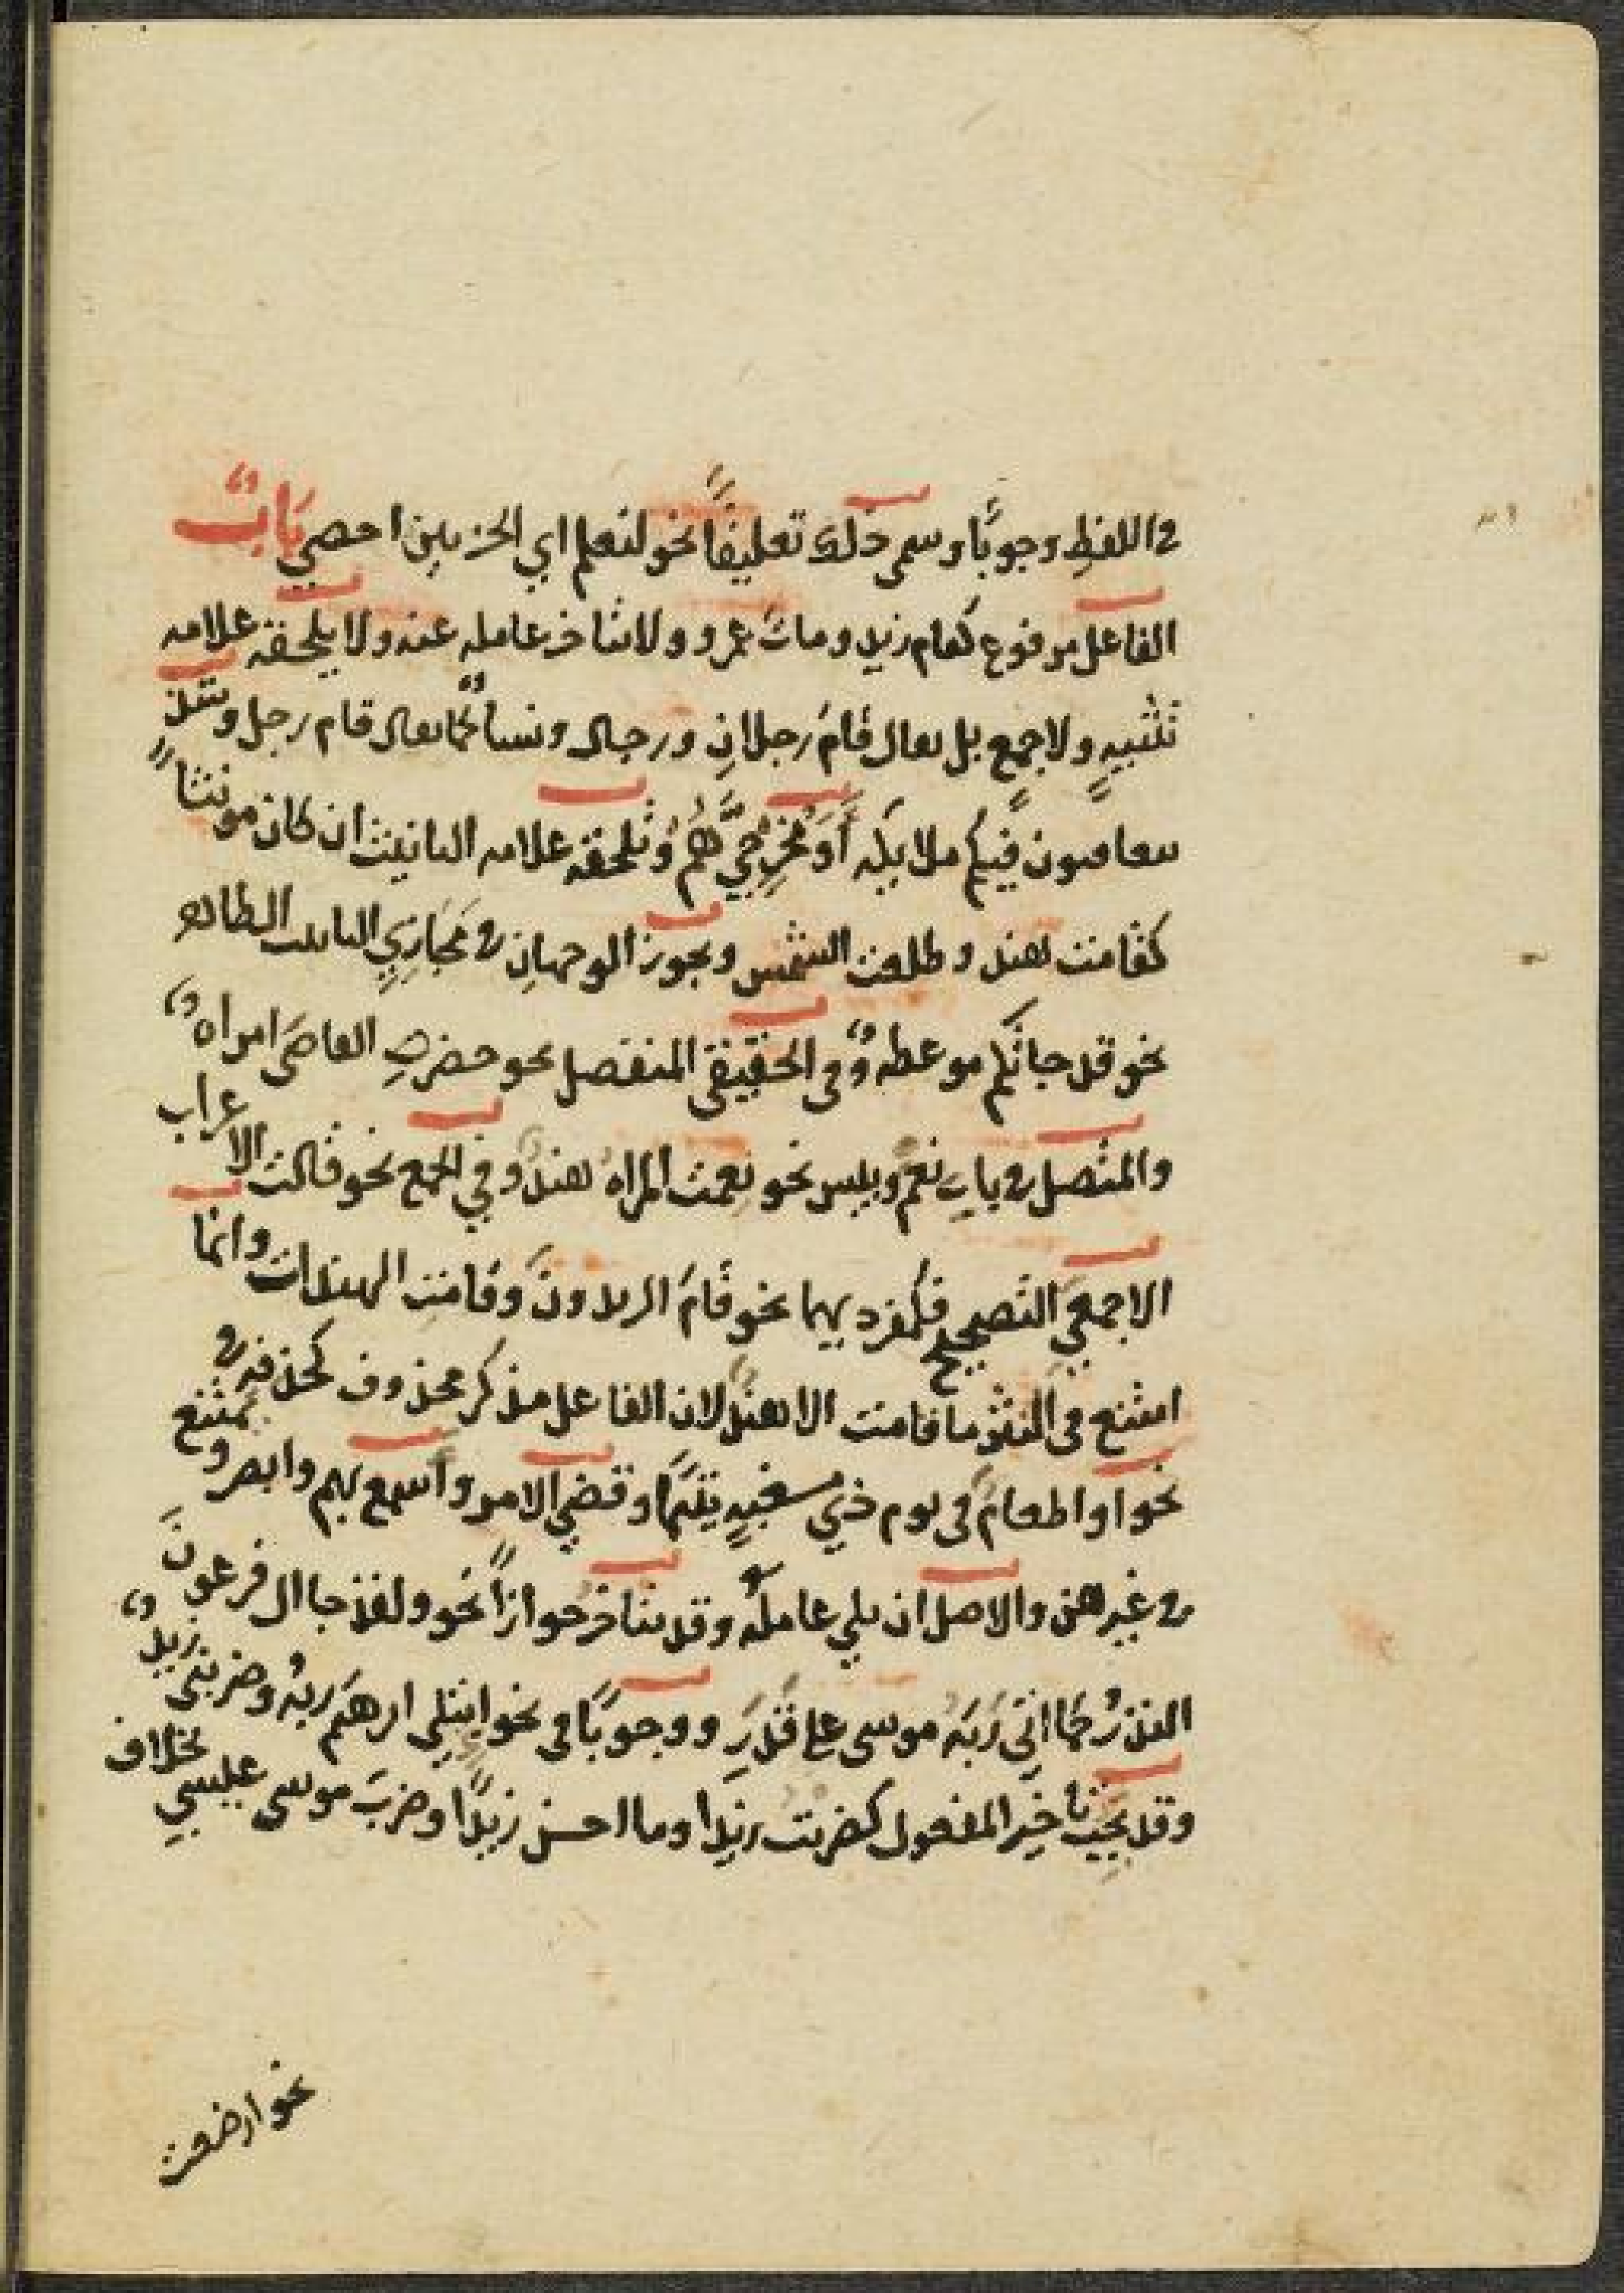 في اللفظِ وجوبًا وسمى ذلك تعليقًا نحو لنعلم اي الحزبين احصي بَابٌ
الفاعل مرفوع كقام زيد ومات عمرو ولا يتاخر عامله عنه ولا يلحقه علامه
تثنيهٍ ولا جمعٍ بل يقال قام رجلانِ ورجال ونساءٌ كما يقال قام رجل وشذ
يتعاقبون فيكم ملايكه أَوَمُخْرِجِيَّ هُم وتلحقه علامه التانيث ان كان مونثاً
كقامت هند وطلعت الشمس ويجوز الوجهانِ في مَجَازيِ التانيث الظاهر
نحو قد جاتكم موعظهٌ وفي الحقيقي المنفصل نحو حضرتِ القاضَي امراهٌ
والمتصل في بابِ نعم وبيس نحو نِعمت المراهُ هندٌ وفي الجمع نحو قالت الاعراب
الاجمعي التصحيح فكمفرديهما نحو قامَ الزيدونَ وقامتِ الهندات وانما
امتنع في النثر ما قامت الا هندٌ لان الفاعل مذكر محذوف كحذفه في
نحو او اطعامٌ في يوم ذي مسغبهٍ يتيمًا وقضي الامر واسمع بهم وابصر ويمتنع
في غيرهن والاصل ان يلي عامله وقد يتاخر جوازاً نحو ولقد جا ال فرعونَ
النذرُ كما اتَى رَبَهُ موسى على قَدَرِ ووجوبًا في نحو ابتلي ابرهيم ربهُ وضربني زيدٌ
وقد يجبُ تاخير المفعول كضربت زيدا وما احسن زيدًا وضربَ موسى عيسي بخلاف
نحو ارضعت